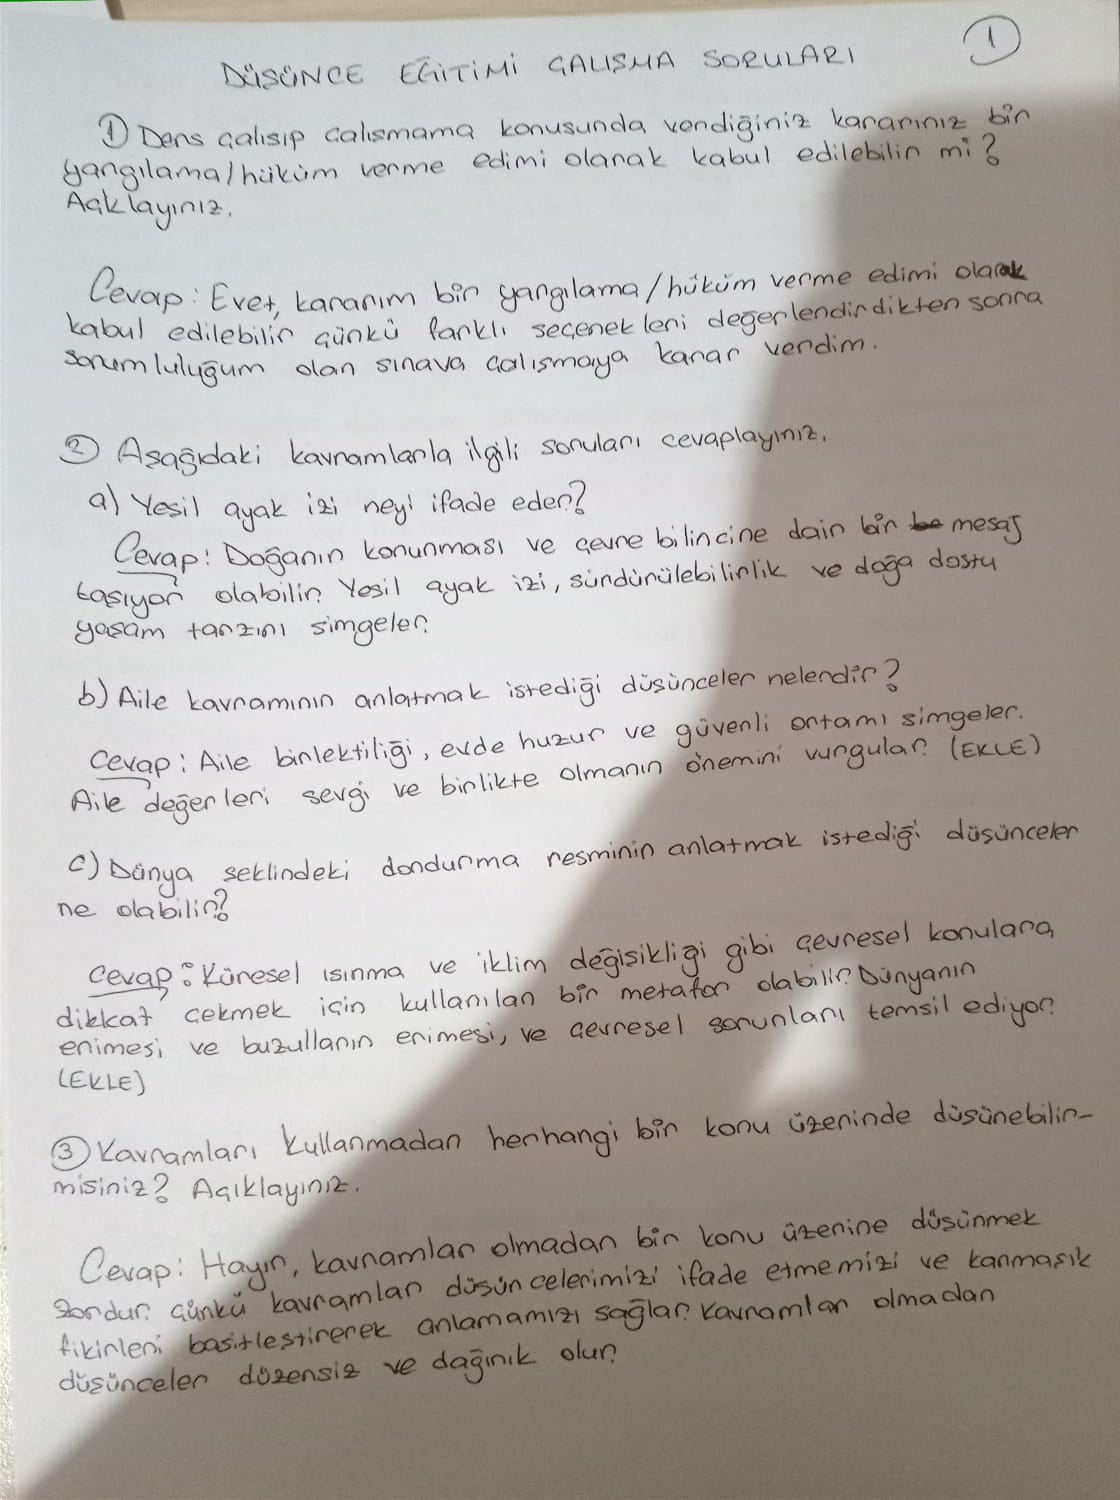 1
DÜŞÜNCE EĞİTİMİ ÇALIŞMA SORULARI
1) Ders çalışıp çalışmama konusunda verdiğiniz kararınız bir
yargılama/hüküm verme edimi olarak kabul edilebilir mi?
Açklayınız.
Cevap: Evet, kararım bir yargılama/hüküm verme edimi olarak
kabul edilebilir çünkü farklı seçenekleri değerlendirdikten sonra
sorumluluğum olan sınava çalışmaya karar verdim.
2 Aşağıdaki kavramlarla ilgili soruları cevaplayınız.
a) Yeşil ayak izi neyi ifade eder?
Cevap: Doğanın korunması ve çevre bilincine dair bir be mesaj
taşıyor olabilir. Yeşil ayak izi, sürdürülebilirlik ve doğa dostu
yaşam tarzını simgeler.
b) Aile kavramının anlatmak istediği düşünceler nelerdir?
Cevap: Aile birlektiliği, evde huzur ve güvenli ortamı simgeler.
Aile değerleri sevgi ve birlikte olmanın önemini vurgular. (EKLE)
c) Dünya şeklindeki dondurma resminin anlatmak istediği düşünceler
ne olabilir?
Cevap: Küresel ısınma ve iklim değişikliği gibi çevresel konulara
dikkat çekmek için kullanılan bir metafor olabilir. Dünyanın
erimesi ve buzulların erimesi, ve çevresel sorunları temsil ediyor.
(EKLE)
3 Kavramları kullanmadan herhangi bir konu üzerinde düşünebilir-
misiniz? Açıklayınız.
Cevap: Hayır, kavramlar olmadan bir konu üzerine düşünmek
zordur. Çünkü kavramlar düşüncelerimizi ifade etmemizi ve karmaşık
fikirleri basitleştirerek anlamamızı sağlar. Kavramlar olmadan
düşünceler düzensiz ve dağınık olur.